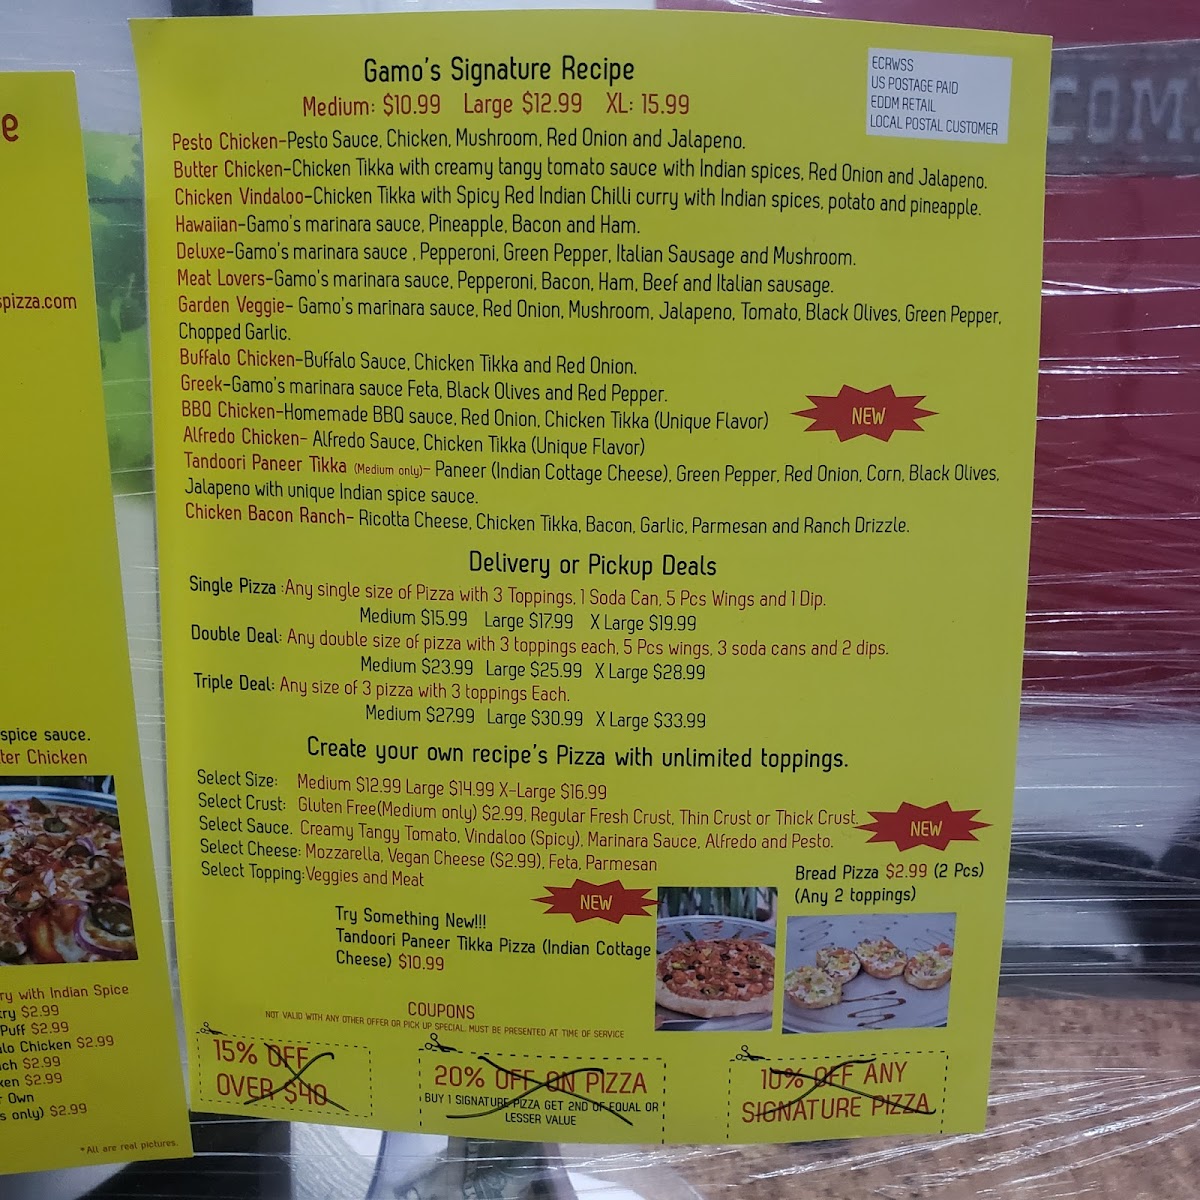 e
spizza.com
spice sauce.
ter Chicken
ry with Indian Spice
try $2.99
Puff $2.99
alo Chicken $2.99
ch $2.99
ken $2.99
Own
s only) $2.99
*All are real pictures.
Gamo's Signature Recipe
Medium: $10.99 Large $12.99 XL: 15.99
ECRWSS
US POSTAGE PAID
EDDM RETAIL
LOCAL POSTAL CUSTOMER
COM
Pesto Chicken-Pesto Sauce, Chicken, Mushroom, Red Onion and Jalapeno.
Butter Chicken-Chicken Tikka with creamy tangy tomato sauce with Indian spices, Red Onion and Jalapeno.
Chicken Vindaloo-Chicken Tikka with Spicy Red Indian Chilli curry with Indian spices, potato and pineapple.
Hawaiian-Gamo's marinara sauce, Pineapple, Bacon and Ham.
Deluxe-Gamo's marinara sauce , Pepperoni, Green Pepper, Italian Sausage and Mushroom.
Meat Lovers-Gamo's marinara sauce, Pepperoni, Bacon, Ham, Beef and Italian sausage.
Garden Veggie- Gamo's marinara sauce, Red Onion, Mushroom, Jalapeno, Tomato, Black Olives, Green Pepper,
Chopped Garlic.
Buffalo Chicken-Buffalo Sauce, Chicken Tikka and Red Onion.
Greek-Gamo's marinara sauce Feta, Black Olives and Red Pepper.
BBQ Chicken-Homemade BBQ sauce, Red Onion, Chicken Tikka (Unique Flavor)
NEW
Alfredo Chicken- Alfredo Sauce, Chicken Tikka (Unique Flavor)
Tandoori Paneer Tikka (Medium only)- Paneer (Indian Cottage Cheese), Green Pepper, Red Onion, Corn, Black Olives,
Jalapeno with unique Indian spice sauce.
Chicken Bacon Ranch- Ricotta Cheese, Chicken Tikka, Bacon, Garlic, Parmesan and Ranch Drizzle.
Delivery or Pickup Deals
Single Pizza :Any single size of Pizza with 3 Toppings, 1 Soda Can, 5 Pcs Wings and 1 Dip.
Medium $15.99 Large $17.99 X Large $19.99
Double Deal: Any double size of pizza with 3 toppings each, 5 Pcs wings, 3 soda cans and 2 dips.
Medium $23.99 Large $25.99 X Large $28.99
Triple Deal: Any size of 3 pizza with 3 toppings Each.
Medium $27.99 Large $30.99 X Large $33.99
Create your own recipe's Pizza with unlimited toppings.
Select Size: Medium $12.99 Large $14.99 X-Large $16.99
Select Crust: Gluten Free(Medium only) $2.99, Regular Fresh Crust, Thin Crust or Thick Crust.
Select Sauce. Creamy Tangy Tomato, Vindaloo (Spicy), Marinara Sauce, Alfredo and Pesto.
NEW
Select Cheese: Mozzarella, Vegan Cheese ($2.99), Feta, Parmesan
Select Topping:Veggies and Meat
Bread Pizza $2.99 (2 Pcs)
(Any 2 toppings)
NEW
Try Something New!!!
Tandoori Paneer Tikka Pizza (Indian Cottage
Cheese) $10.99
COUPONS
NOT VALID WITH ANY OTHER OFFER OR PICK UP SPECIAL. MUST BE PRESENTED AT TIME OF SERVICE
15% OFF
OVER $40
20% OFF ON PIZZA
BUY 1 SIGNATURE PIZZA GET 2ND OF EQUAL OR
LESSER VALUE
10% OFF ANY
SIGNATURE PIZZA